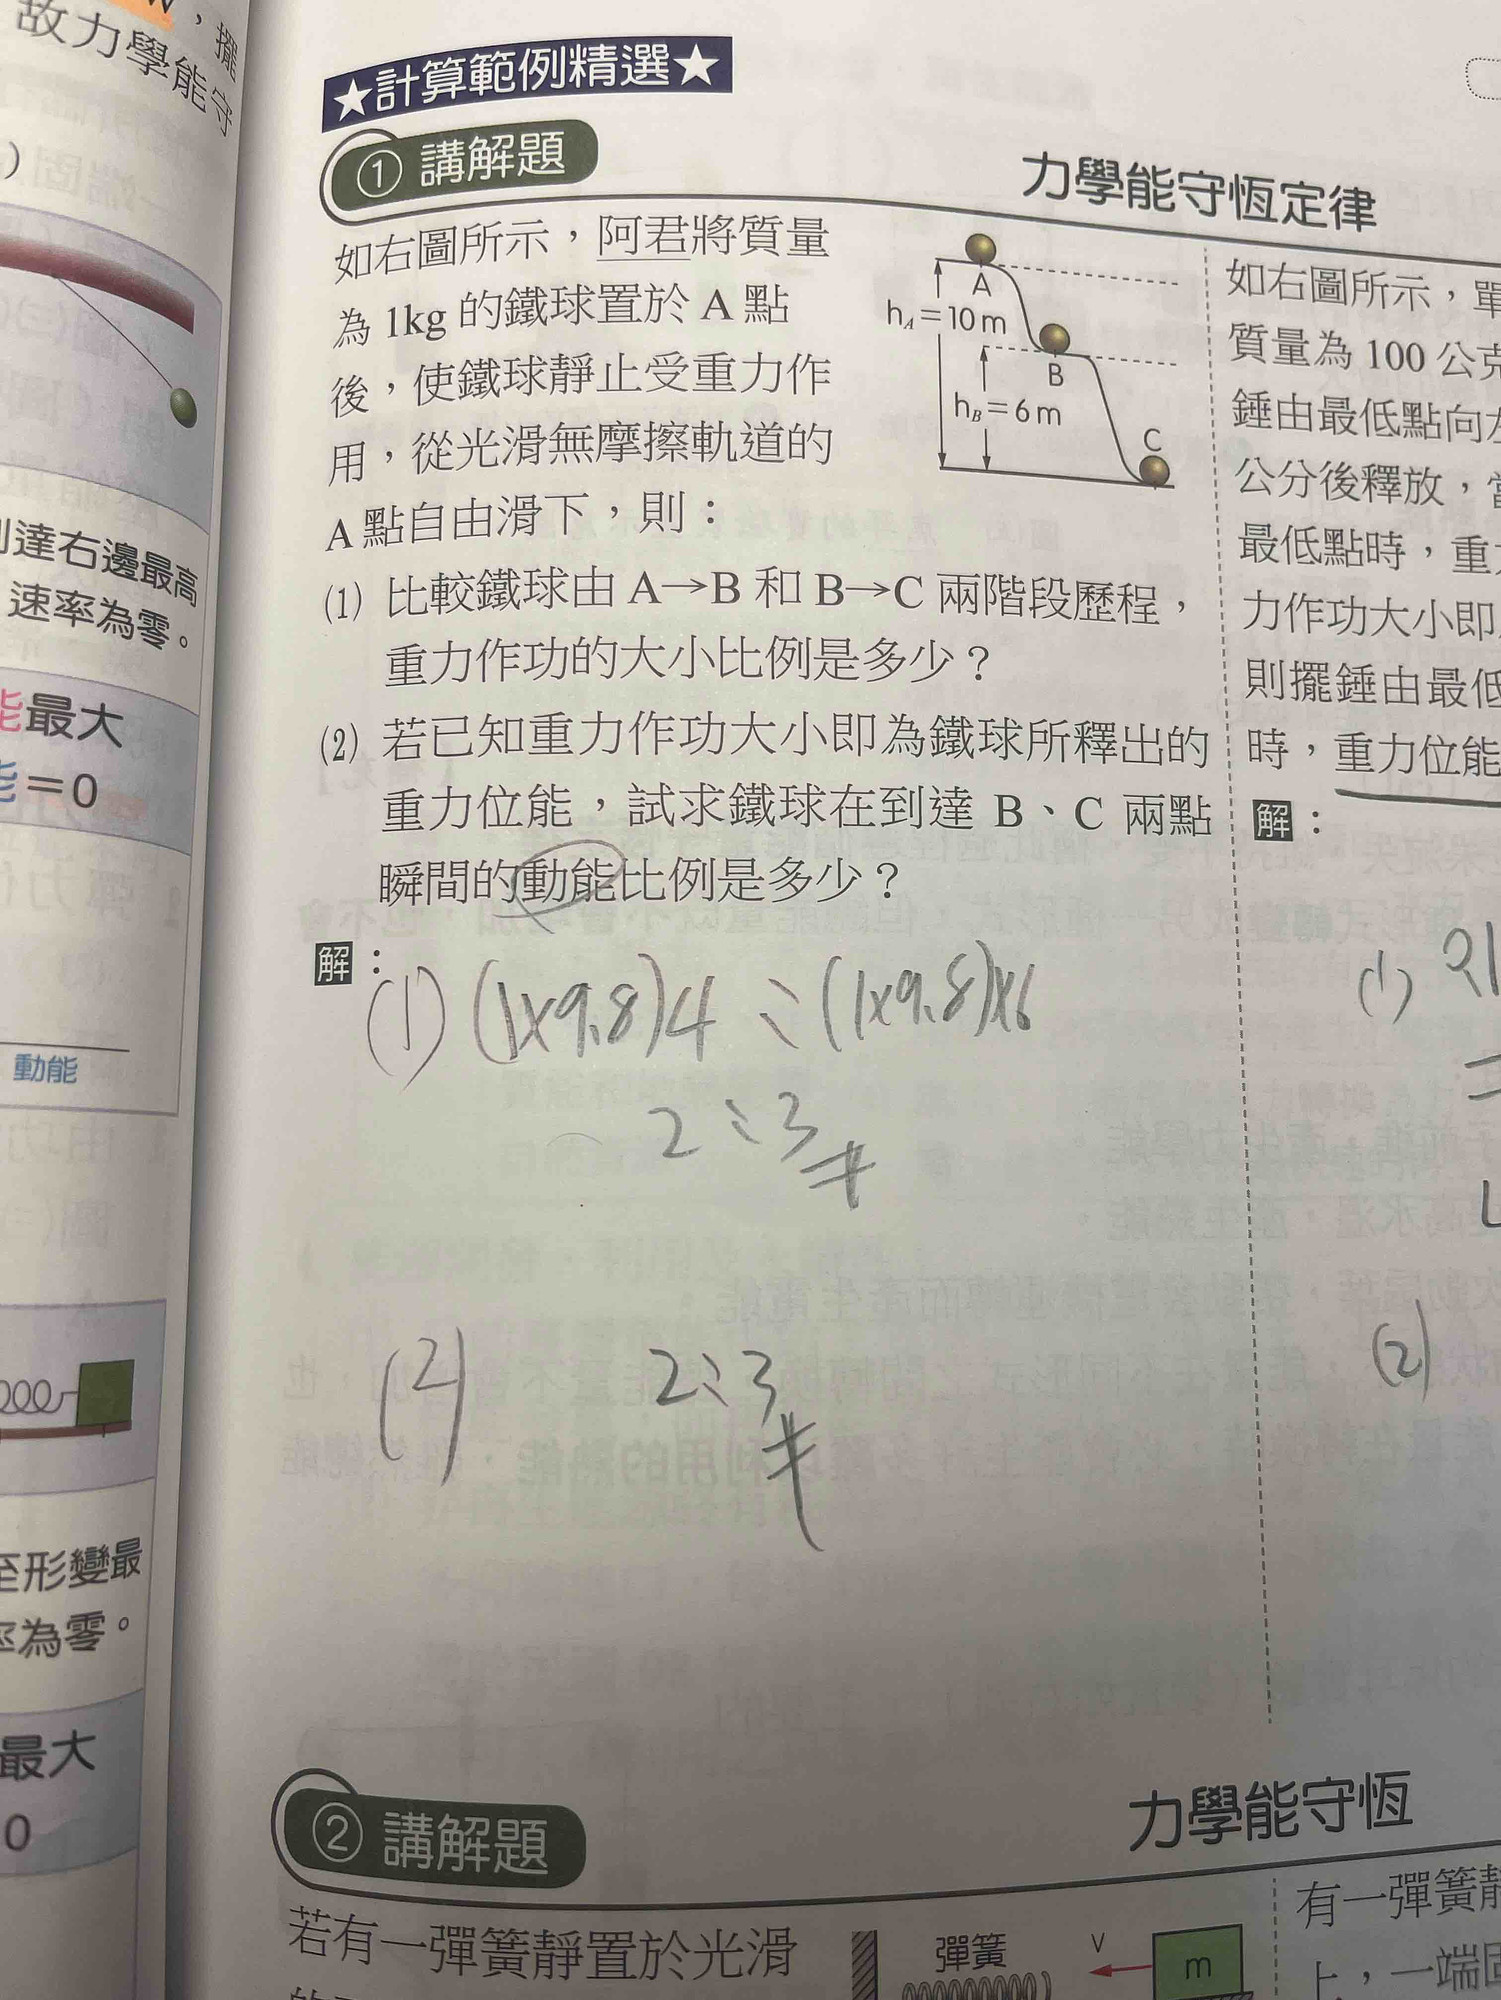 ，擺
故力學能守
)
到達右邊最高
速率為零。
能最大
能＝0
動能
至形變最
率為零。
最大
0
★計算範例精選★
① 講解題
力學能守恆定律
如右圖所示，阿君將質量
為 1kg 的鐵球置於 A 點
後，使鐵球靜止受重力作
用，從光滑無摩擦軌道的
A 點自由滑下，則：
A
hA＝10 m
B
hB＝6 m
C
(1) 比較鐵球由 A→B 和 B→C 兩階段歷程，
重力作功的大小比例是多少？
(2) 若已知重力作功大小即為鐵球所釋出的
重力位能，試求鐵球在到達 B、C 兩點
瞬間的動能比例是多少？
解：
(1) (1×9.8)4：(1×9.8)×6
2：3
(2) 2：3
如右圖所示，單
質量為 100 公克
錘由最低點向左
公分後釋放，當
最低點時，重
力作功大小即
則擺錘由最低
時，重力位能
解：
(1)
(2)
② 講解題
力學能守恆
若有一彈簧靜置於光滑
彈簧
v
m
有一彈簧靜
上，一端固